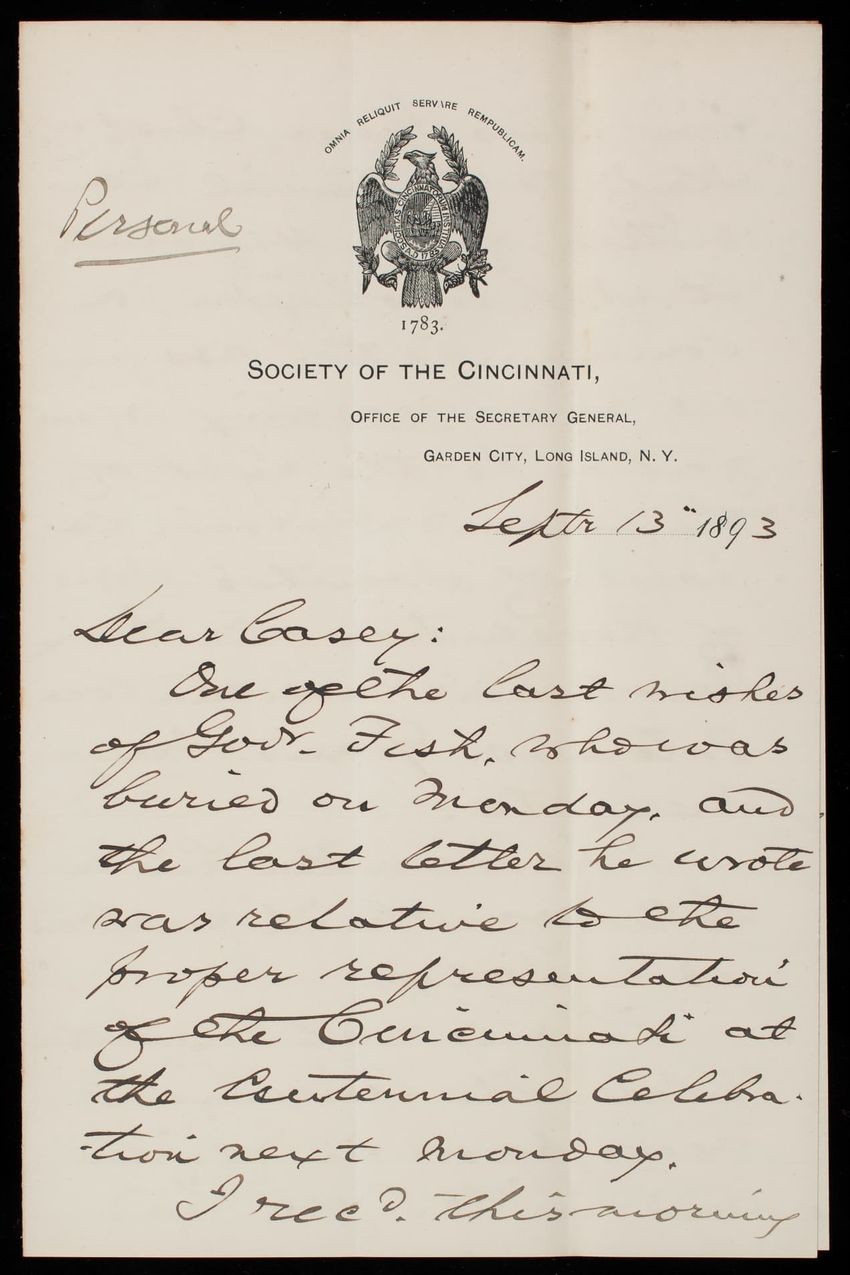 OMNIA RELIQUIT SERVARE REMPUBLICAM.
Personal
SOCIETAS CINCINNATORUM INSTITUTA A.D. 1783.
1783.
SOCIETY OF THE CINCINNATI,
OFFICE OF THE SECRETARY GENERAL,
GARDEN CITY, LONG ISLAND, N. Y.
Septr 13" 1893
Dear Casey:
One of the last wishes
of Govr. Fish, who was
buried on Monday, and
the last letter he wrote
was relative to the
proper representation
of the Cincinnati at
the Centennial Celebra-
-tion next Monday.
I recd. this morning